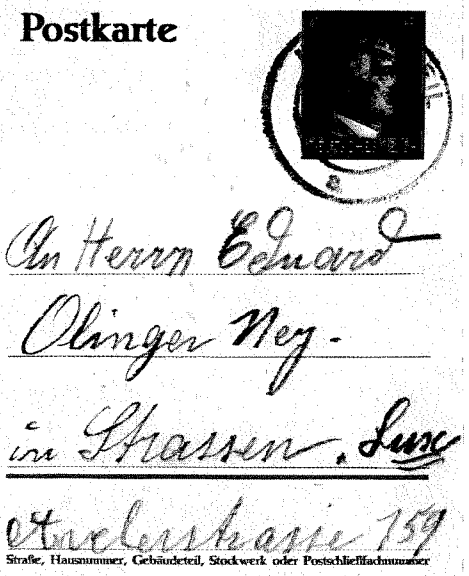 Postkarte
An Herrn Eduard
Olinger Ney.
in Strassen, Lux
Arelerstrasse 159
Straße, Hausnummer, Gebäudeteil, Stockwerk oder Postschließfachnummer